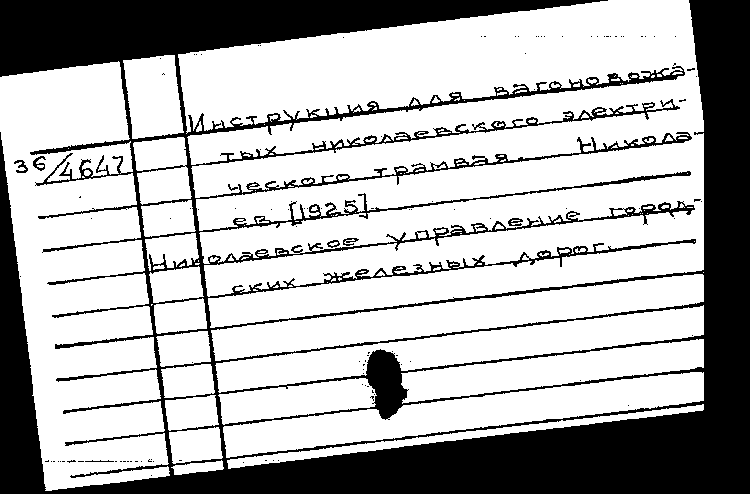 Инструкция для вагоновожа-
тых николаевского электри-
36/4647
ческого трамвая. Никола-
ев, [1925].
Николаевское управление город-
ских железных дорог.